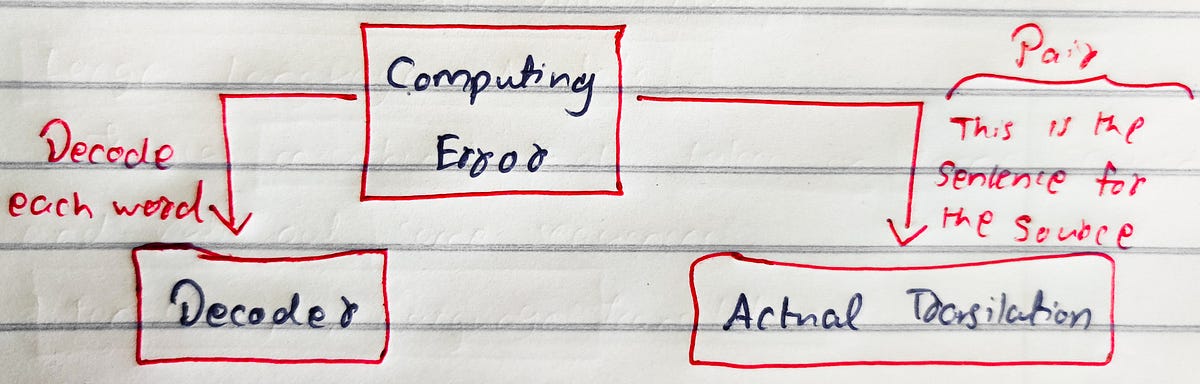 Computing
Error
Pair
This is the
Sentence for
the source
Decode
each word
Decoder
Actual Transilation